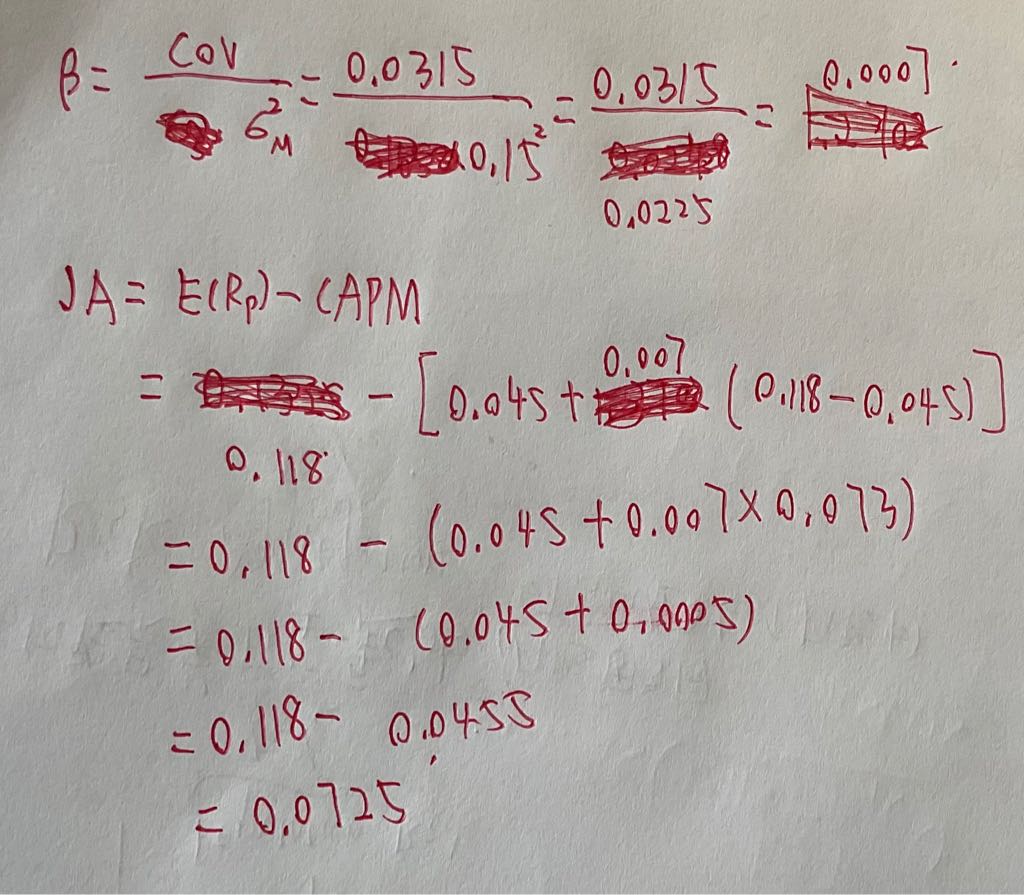 β = COV / σ²M = 0.0315 / 0.15² = 0.0315 / 0.0225 = 0.0007
JA = E(Rp) - CAPM
= 0.118 - [0.045 + 0.007 (0.118 - 0.045)]
= 0.118 - (0.045 + 0.007 × 0.073)
= 0.118 - (0.045 + 0.0005)
= 0.118 - 0.0455
= 0.0725